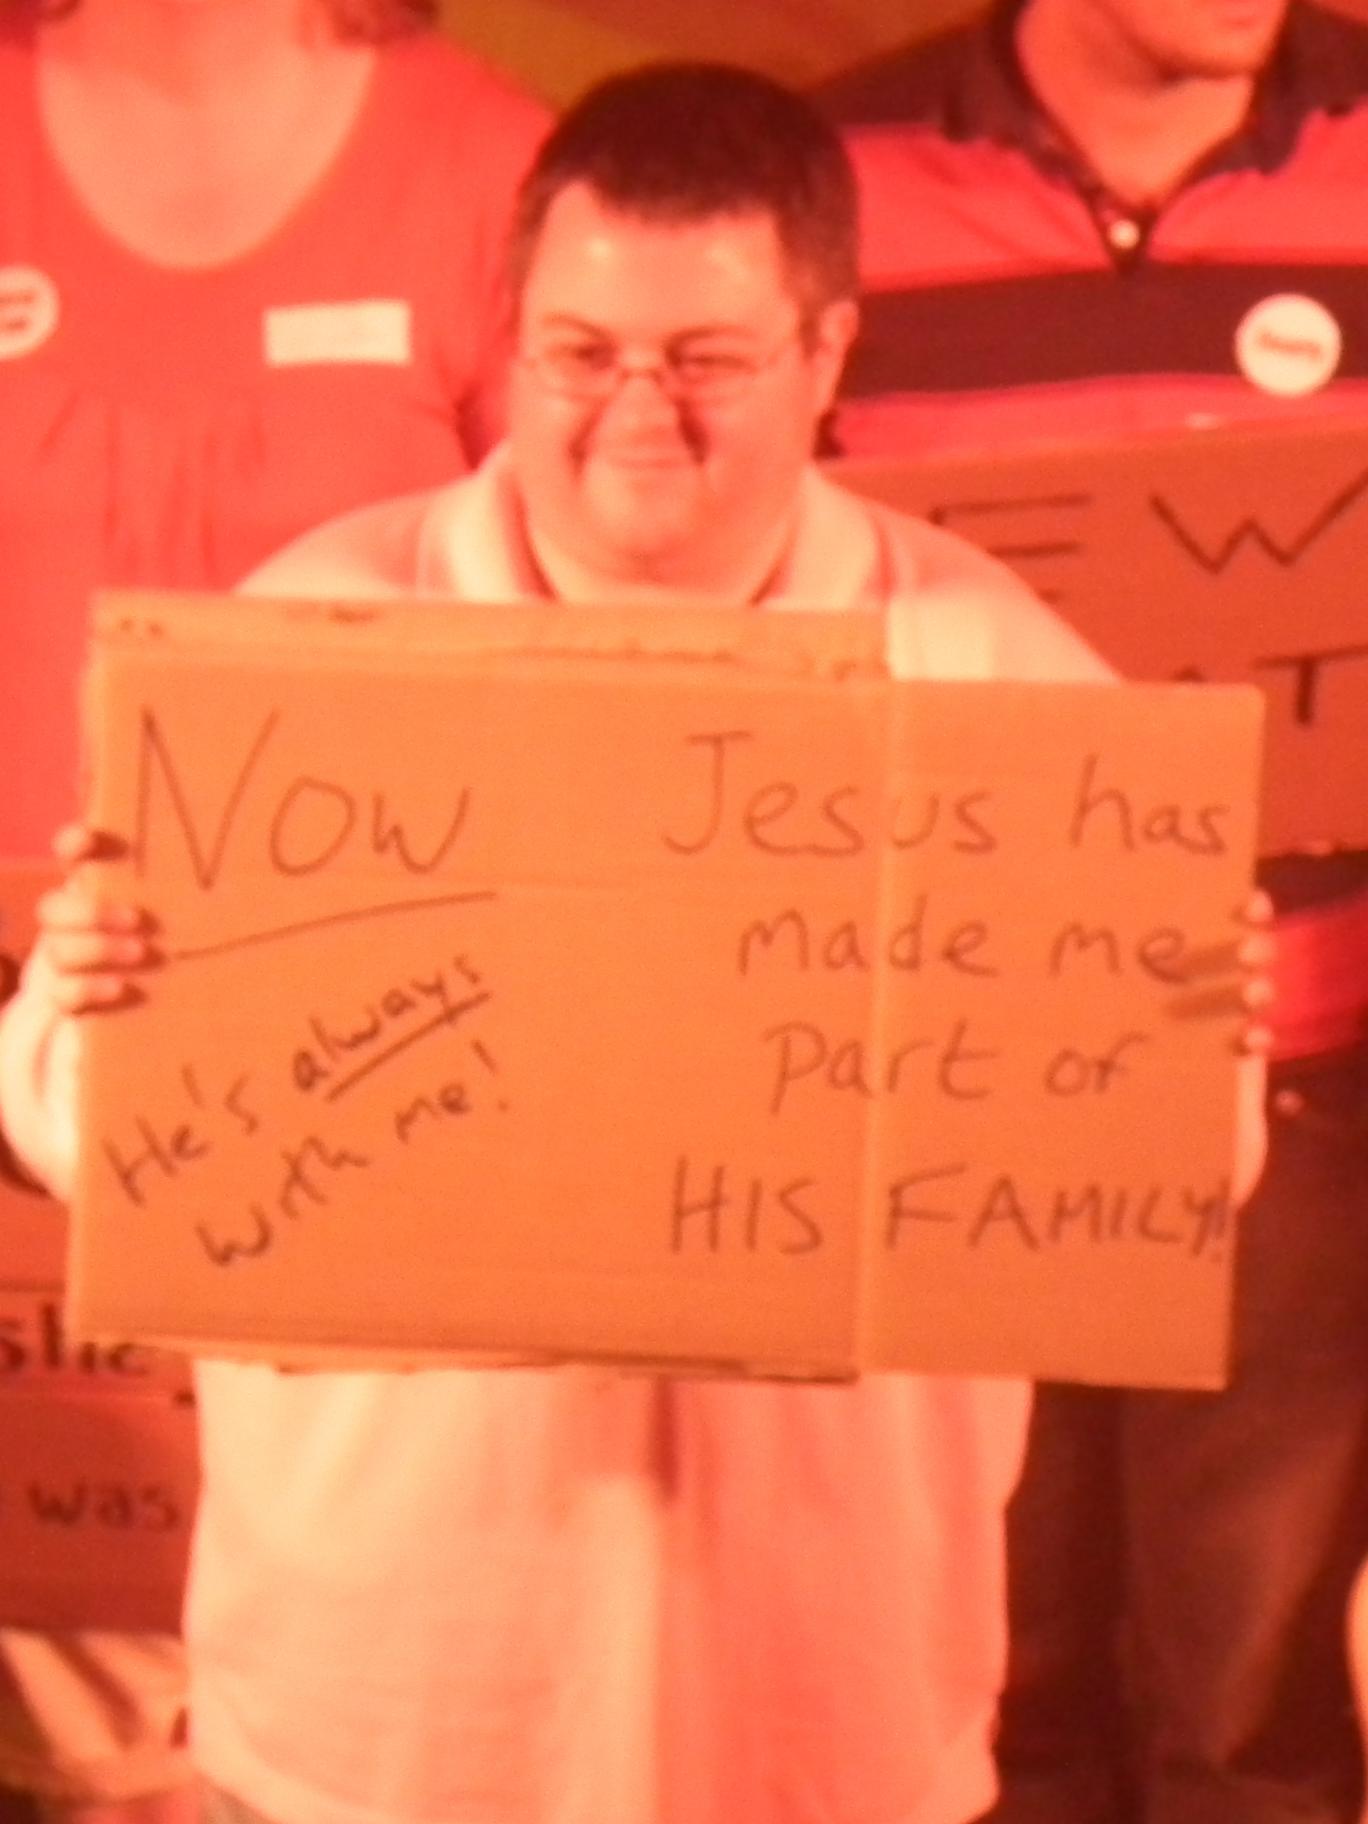 NOW
He's always
with me!
Jesus has
made me
part of
HIS FAMILY!
EW
AT
she
was